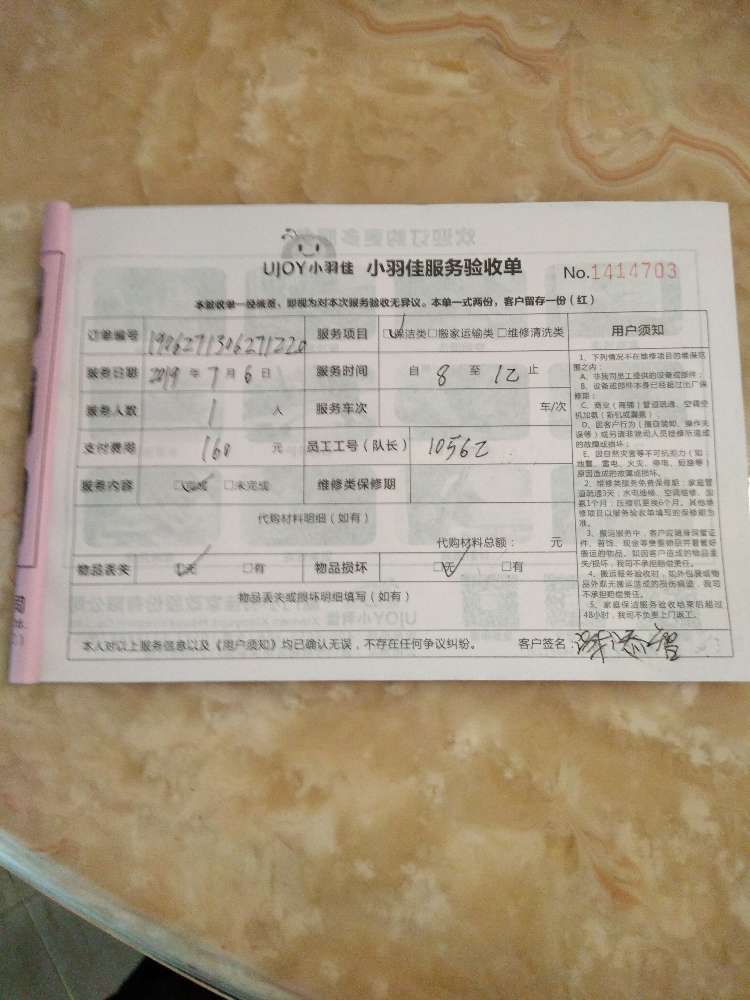 UJOY小羽佳 小羽佳服务验收单 No.1414703
本验收单一经核签、即视为对本次服务验收无异议。本单一式两份，客户留存一份（红）
订单编号 1906271306271220 服务项目 □保洁类□搬家运输类□维修清洗类 用户须知
服务日期 2019 年 7 月 6 日 服务时间 自 8 至 12 止
服务人数 1 人 服务车次 车/次
支付费用 160 元 员工工号（队长） 10562
服务内容 □完成 □未完成 维修类保修期
代购材料明细（如有）
代购材料总额： 元
物品丢失 □无 □有 物品损坏 □无 □有
物品丢失或损坏明细填写（如有）
本人对以上服务信息以及《用户须知》均已确认无误，不存在任何争议纠纷。 客户签名：
1、下列情况不在维修项目的维保范
围之内：
A、非我司员工提供的设备或部件；
B、设备或部件本身已经超过出厂保
修期；
C、商业（商铺）管道疏通、空调空
机加氨（新机或漏氨
D、因客户行为（擅自装卸、操作失
误等）或另请非我司人员检修所造成
的故障或损坏；
E、因自然灾害等不可抗拒力（如
地震、雷电、火灾、停电、短路等）
原因造成的故障或损坏。
2、维修类服务免费保修期：家庭管
道疏通3天；水电维修、空调维修、加
氨1个月；压缩机更换6个月。其他维
修项目以服务验收单填写的保修期为
准。
3、搬运服务中，客户应随身保管证
件、首饰、现金等贵重物品并看管好
搬运的物品。如因客户造成的物品丢
失/损坏，我司不承担赔偿责任。
4、搬运服务验收时，如外包装或物
品外观无搬运造成的损伤痕迹，我司
不承担赔偿责任。
5、家庭保洁服务验收结束后超过
48小时，我司不负责上门返工。